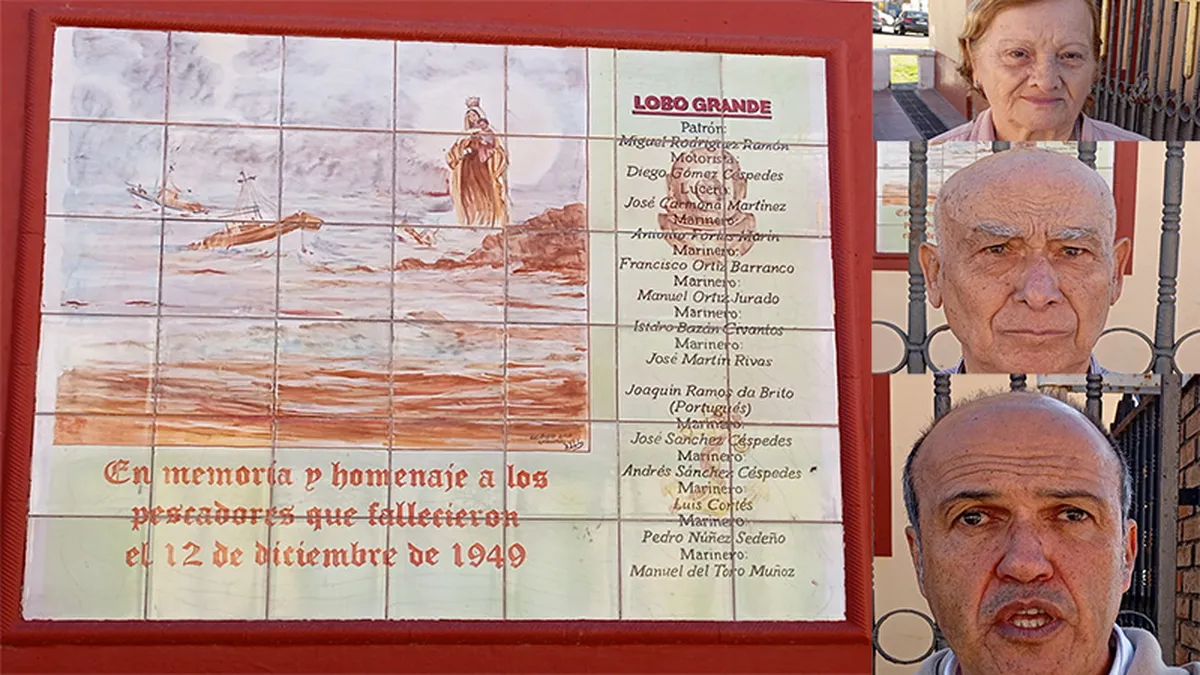 LOBO GRANDE
Patrón:
Miguel Rodríguez Ramón
Motorista:
Diego Gómez Céspedes
Lucero:
José Carmona Martinez
Marinero:
Antonio Marín
Marinero:
Francisco Ortiz Barranco
Marinero:
Manuel Ortiz Jurado
Marinero:
Isidro Bazán Civantos
Marinero:
José Martín Rivas
Joaquin Ramos da Brito
(Portugués)
Marinero:
José Sanchez Céspedes
Marinero:
Andrés Sánchez Céspedes
Marinero:
Luis Cortés
Marinero:
Pedro Núñez Sedeño
Marinero:
Manuel del Toro Muñoz
En memoria y homenaje a los
pescadores que fallecieron
el 12 de diciembre de 1949